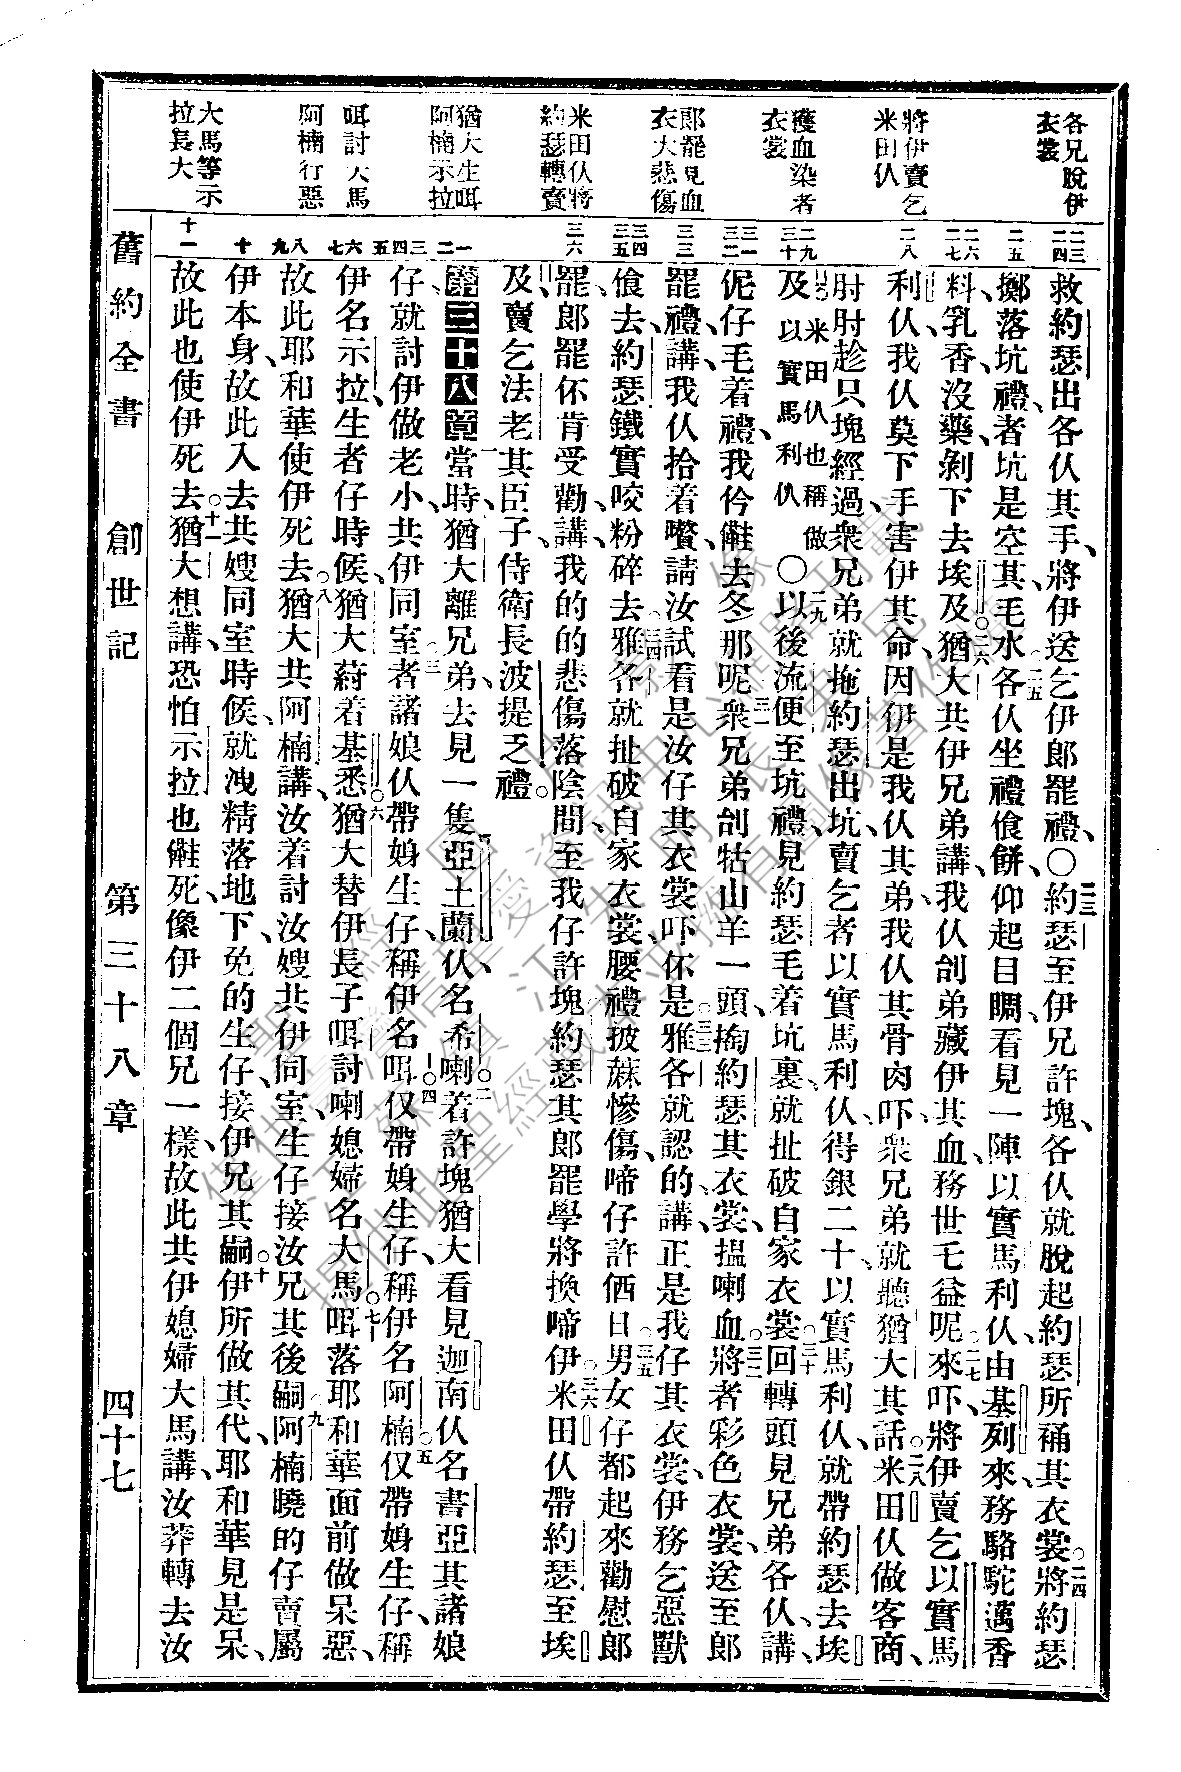 各兄脫伊
衣裳
將伊賣乞
米田仈
獲血染者
衣裳
郎罷見血
衣大悲傷
米田仈將
約瑟轉賣
猶大生咡
阿楠示拉
咡討大馬
阿楠行惡
大馬等示
拉長大
二三
二四
二五
二六
二七
二八
二九
三十
三一
三二
三三
三四
三五
三六
一
二
三
四
五
六
七
八
九
十
十一
救約瑟出各仈其手、將伊送乞伊郎罷禮、〇二三約瑟至伊兄許塊、各仈就脫起約瑟所䘄其衣裳、〇二四將約瑟
擲落坑禮、者坑是空其、毛水、〇二五各仈坐禮飡餅、仰起目睭看見一陣以實馬利仈、由基列來、務駱駝邁香
料、乳香、沒藥、剝下去埃及、〇二六猶大共伊兄弟講、我仈刣弟藏伊其血、務世乇益呢、〇二七來吓、將伊賣乞以實馬
利仈、我仈莫下手害伊其命、因伊是我仈其弟、我仈其骨肉吓、衆兄弟就聽猶大其話、〇二八米田仈做客商、
肘肘趁只塊經過、衆兄弟就拖約瑟出坑、賣乞者以實馬利仈、得銀二十、以實馬利仈、就帶約瑟去埃
及、米田仈也稱做以實馬利仈〇二九以後流便至坑禮、見約瑟毛着坑裏、就扯破自家衣裳、〇三十回轉頭見兄弟各仈、講、
伲仔毛着禮、我伱𣍐去冬那呢、〇三一衆兄弟刣牯山羊一頭、搊約瑟其衣裳、搵喇血、〇三二將者彩色衣裳、送至郎
罷禮、講、我仈拾着嚽、請汝試看是汝仔其衣裳吓伓是、〇三三雅各就認的、講、正是我仔其衣裳、伊務乞惡獸
飡去、約瑟鐵實咬粉碎去、〇三四雅各就扯破自家衣裳、腰禮披蔴、慘傷啼仔許価日、〇三五男女仔都起來勸慰郎
罷、郎罷伓肯受勸、講、我的的悲傷落陰間、至我仔許塊、約瑟其郎罷學將換啼伊、〇三六米田仈帶約瑟至埃
及、賣乞法老其臣子、侍衛長波提乏禮。
第三十八章 一當時、猶大離兄弟去見一隻亞土蘭仈、名希喇、〇二着許塊猶大看見迦南仈名書亞其諸娘
仔、就討伊做老小、共伊同室、〇三者諸娘仈帶娠生仔、稱伊名咡、〇四仅帶娠生仔、稱伊名阿楠、〇五仅帶娠生仔、稱
伊名示拉、生者仔時候、猶大蒔着基悉、〇六猶大替伊長子咡討喇媳婦名大馬、〇七咡落耶和華面前做呆惡、
故此耶和華使伊死去、〇八猶大共阿楠講、汝着討汝嫂、共伊同室、生仔接汝兄其後嗣、〇九阿楠曉的仔賣屬
伊本身、故此入去共嫂同室時候、就洩精落地下、免的生仔、接伊兄其嗣、〇十伊所做其代、耶和華見是呆、
故此也使伊死去、〇十一猶大想講、恐怕示拉也𣍐死像伊二個兄一樣、故此共伊媳婦大馬講、汝莽轉去汝
舊約全書 創世記 第三十八章 四十七